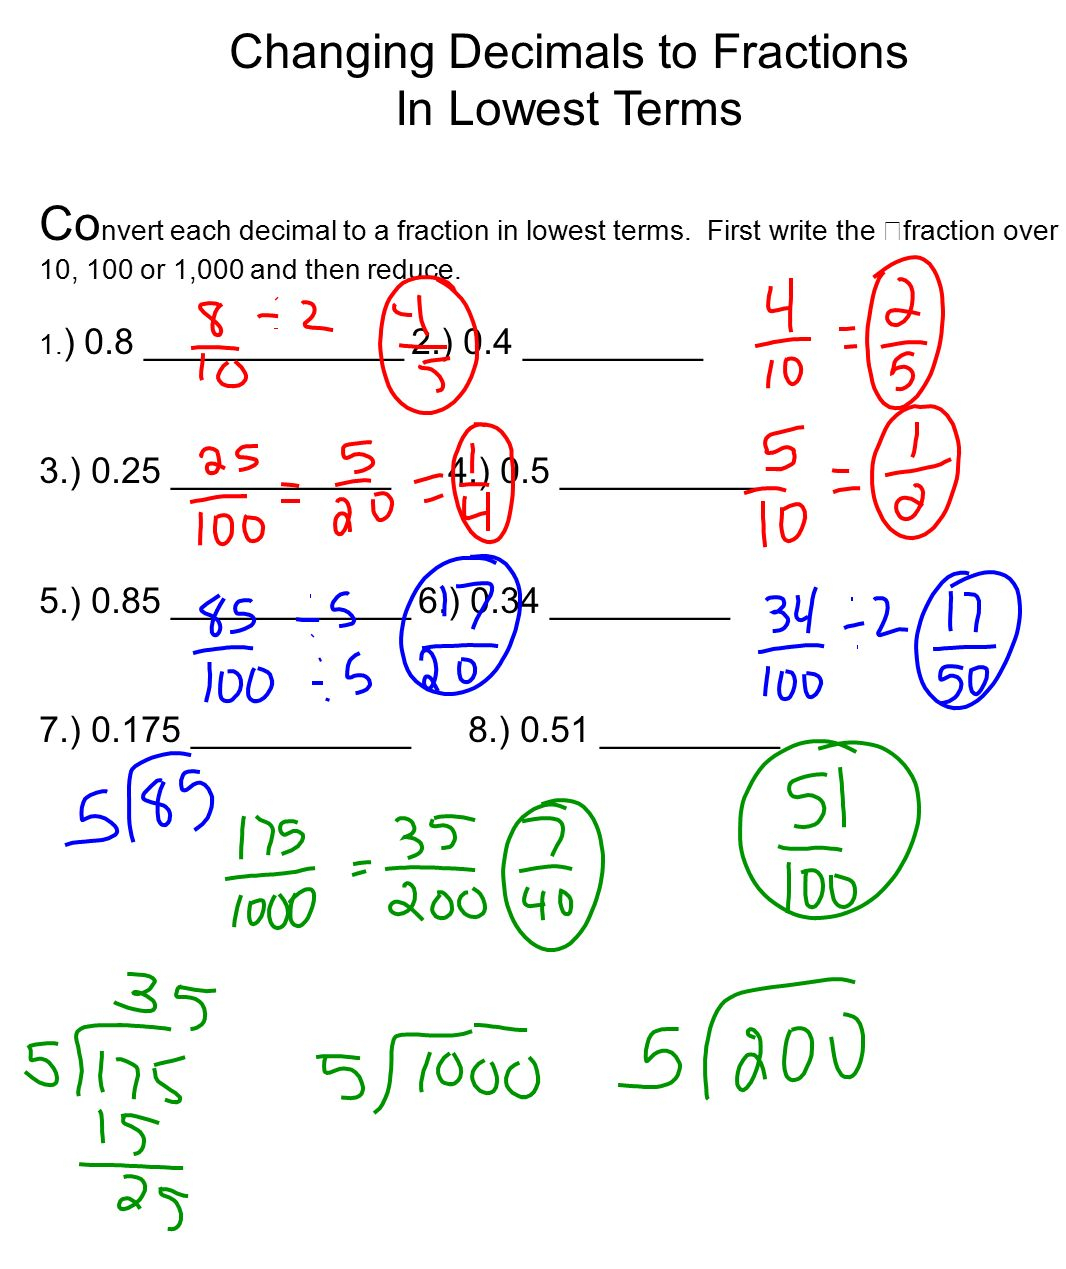 Changing Decimals to Fractions
In Lowest Terms
Convert each decimal to a fraction in lowest terms.  First write the □fraction over
10, 100 or 1,000 and then reduce.
1.) 0.8 ______________ 2.) 0.4 __________
8/10 ÷ 2 4/5
4/10 = 2/5
3.) 0.25 ____________ 4.) 0.5 __________
25/100 = 5/20 = 1/4
5/10 = 1/2
5.) 0.85 _____________ 6.) 0.34 __________
85/100 ÷ 5/÷ 5 17/20
34/100 ÷ 2 17/50
7.) 0.175 ____________ 8.) 0.51 __________
5)85
175/1000 = 35/200 7/40
51/100
35
5)175
15
25
5)1000
5)200